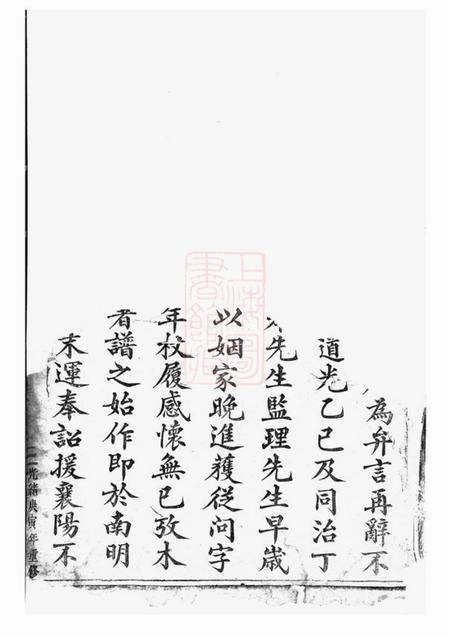 為弁言再辭不
道光乙巳及同治丁
先生監理先生早歲
以姻家晚進獲從問字
年杖履感懷無已攷木
者譜之始作即於南明
末運奉詔援襄陽不
光緒庚寅年重修
上海圖書館